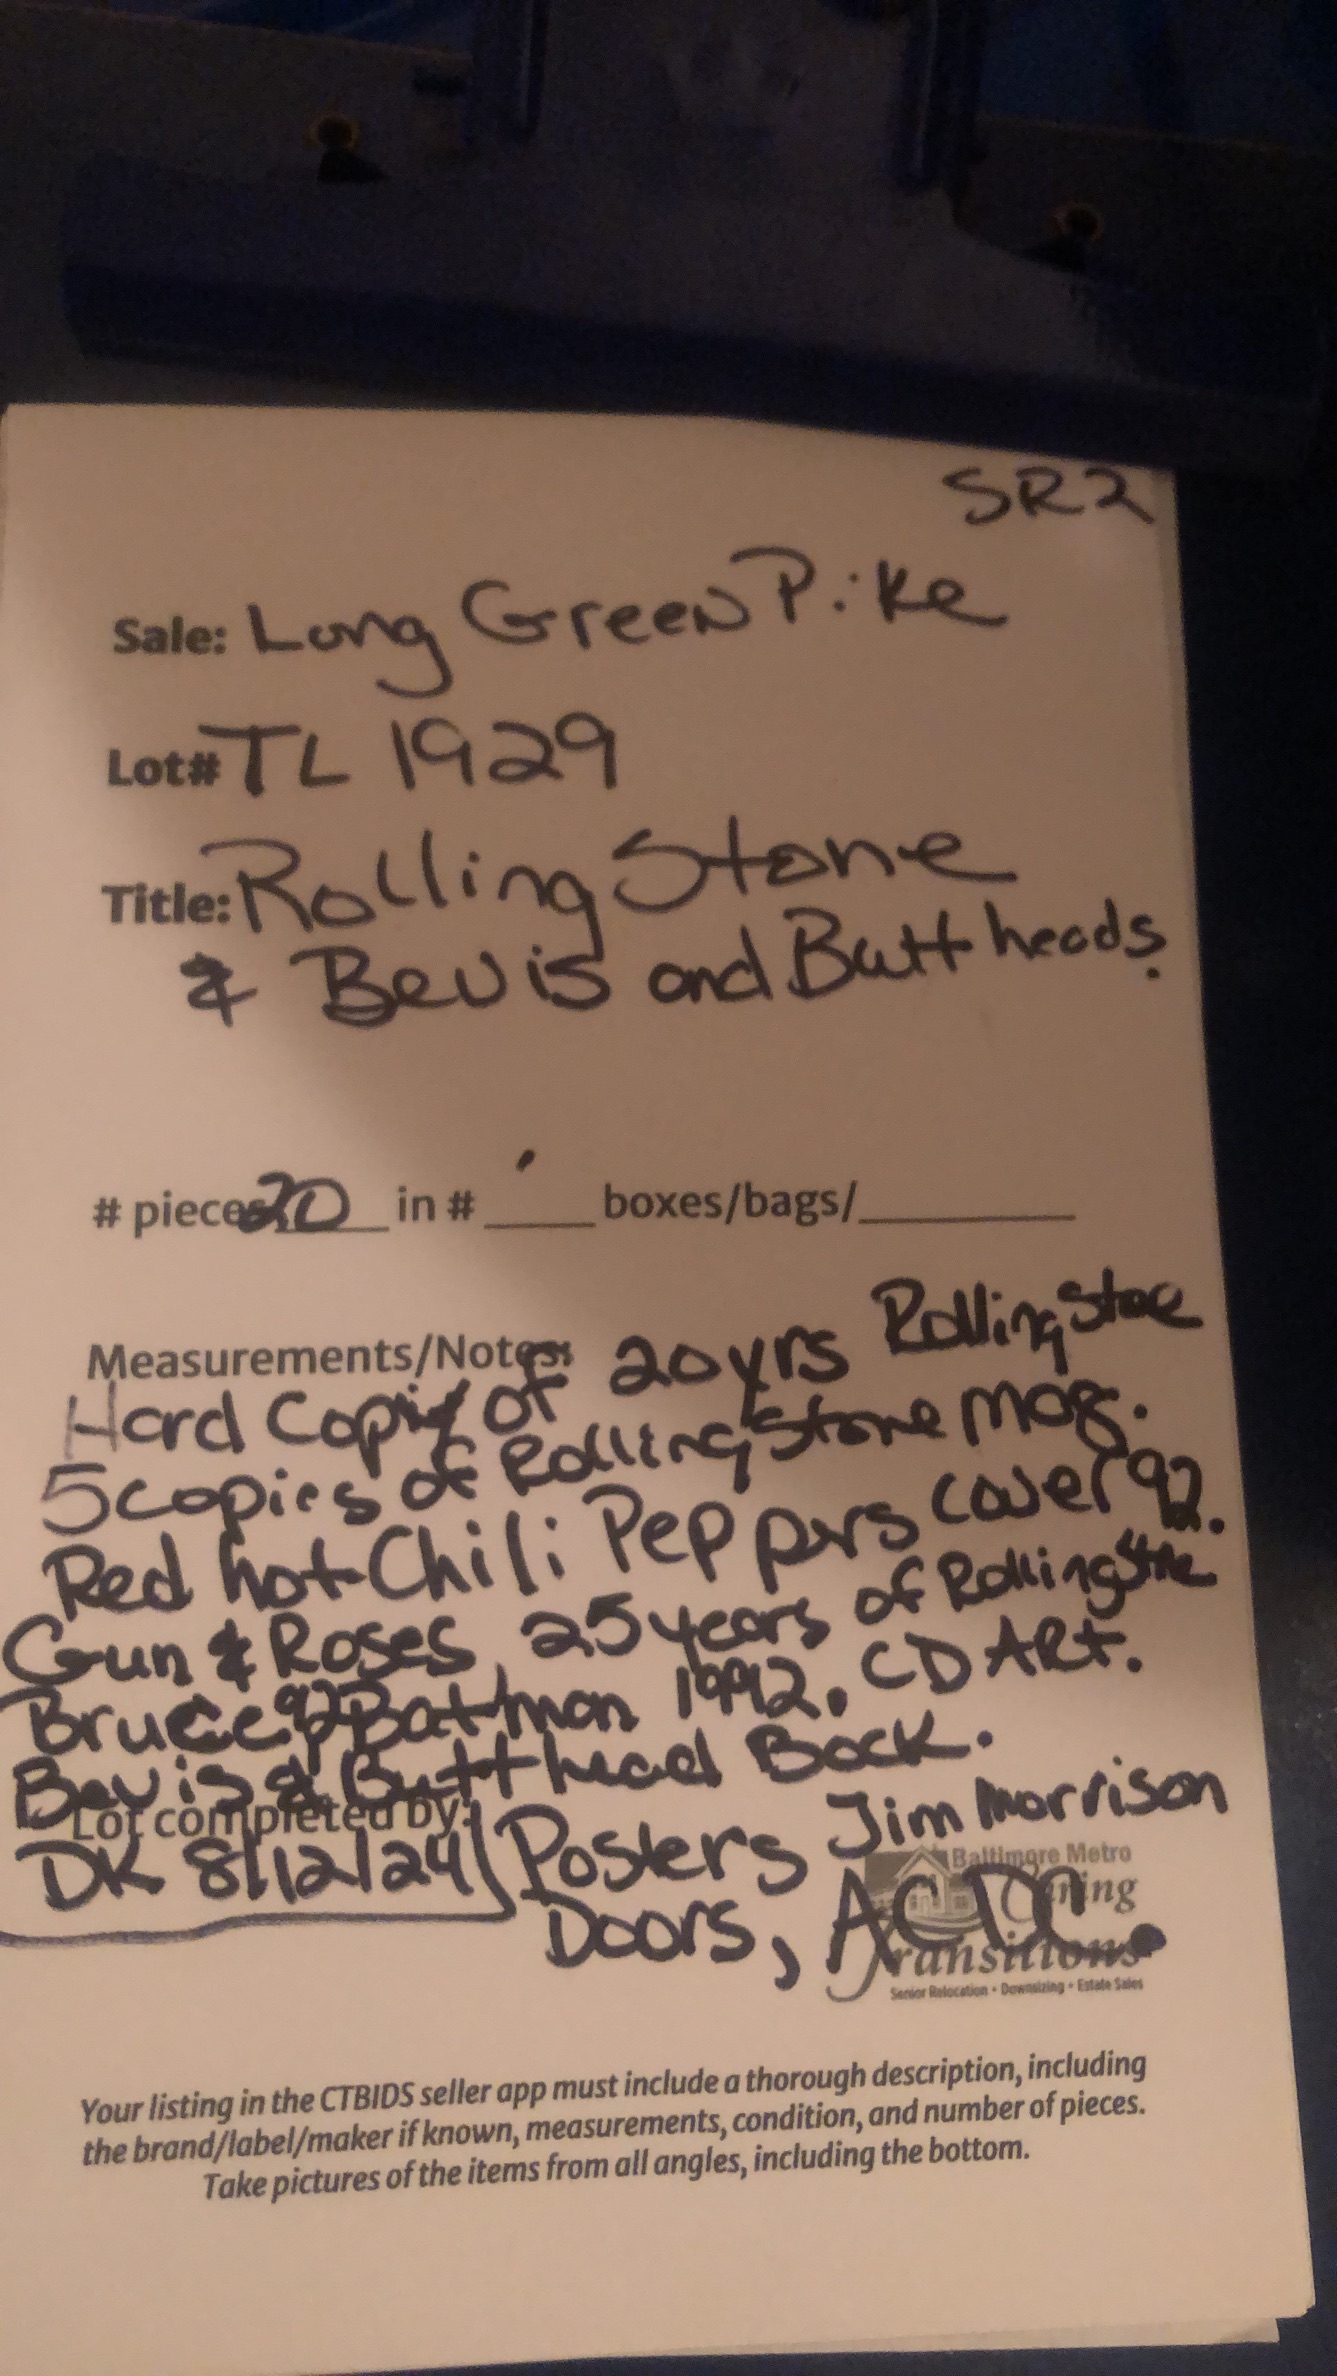 SR2
Sale: Long Green Pike
Lot# TL 1929
Title: Rolling Stone
& Bevis and Butt heads.
# pieces 20 in # ____ boxes/bags/________
Measurements/Notes: 20 yrs Rolling Stoe
Hard Copy of
5 copies of Rolling Stone mag.
Red hot Chili Peppers cover 92.
Gun & Roses, 25 years of Rolling Stne
Bruce 92 Battman 1992. CD ARt.
Bevis & Butt head Bock.
Lot completed by:
DK 8/12/24 Posters Jim Morrison
Doors, ACDC.
Baltimore Metro
Caring
Transitions
Senior Relocation • Downsizing • Estate Sales
Your listing in the CTBIDS seller app must include a thorough description, including
the brand/label/maker if known, measurements, condition, and number of pieces.
Take pictures of the items from all angles, including the bottom.